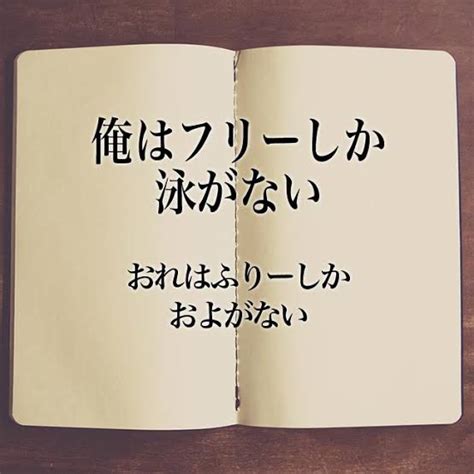 俺はフリーしか
泳がない
おれはふりーしか
およがない